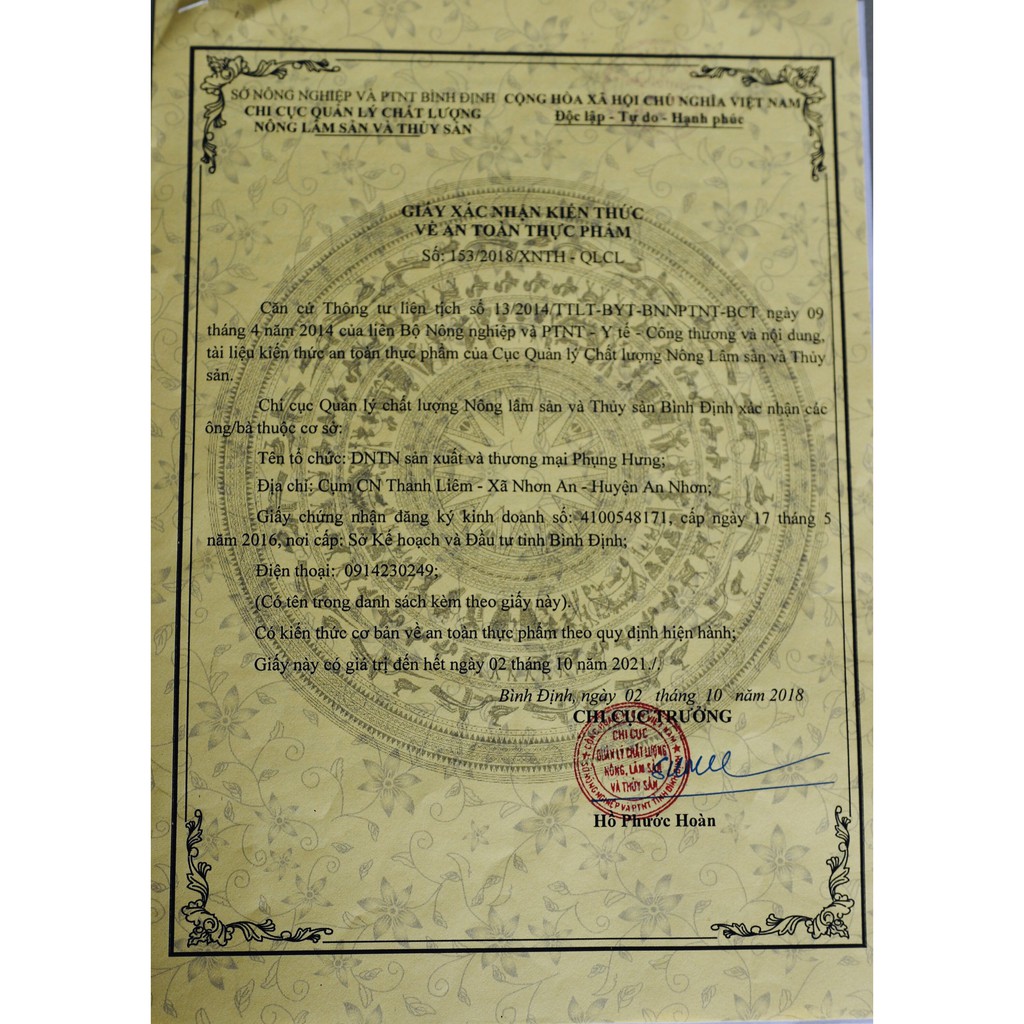 SỞ NÔNG NGHIỆP VÀ PTNT BÌNH ĐỊNH
CHI CỤC QUẢN LÝ CHẤT LƯỢNG
NÔNG LÂM SẢN VÀ THỦY SẢN
CỘNG HÒA XÃ HỘI CHỦ NGHĨA VIỆT NAM
Độc lập - Tự do - Hạnh phúc
GIẤY XÁC NHẬN KIẾN THỨC
VỀ AN TOÀN THỰC PHẨM
Số: 153/2018/XNTH - QLCL
Căn cứ Thông tư liên tịch số 13/2014/TTLT-BYT-BNNPTNT-BCT ngày 09
tháng 4 năm 2014 của liên Bộ Nông nghiệp và PTNT - Y tế - Công thương và nội dung,
tài liệu kiến thức an toàn thực phẩm của Cục Quản lý Chất lượng Nông Lâm sản và Thủy
sản.
Chi cục Quản lý chất lượng Nông lâm sản và Thủy sản Bình Định xác nhận các
ông/bà thuộc cơ sở:
Tên tổ chức: DNTN sản xuất và thương mại Phụng Hưng;
Địa chỉ: Cụm CN Thanh Liêm - Xã Nhơn An - Huyện An Nhơn;
Giấy chứng nhận đăng ký kinh doanh số: 4100548171, cấp ngày 17 tháng 5
năm 2016, nơi cấp: Sở Kế hoạch và Đầu tư tỉnh Bình Định;
Điện thoại: 0914230249;
(Có tên trong danh sách kèm theo giấy này).
Có kiến thức cơ bản về an toàn thực phẩm theo quy định hiện hành;
Giấy này có giá trị đến hết ngày 02 tháng 10 năm 2021./.
Bình Định, ngày 02 tháng 10 năm 2018
CHI CỤC TRƯỞNG
CHI CỤC
QUẢN LÝ CHẤT LƯỢNG
NÔNG, LÂM SẢN
VÀ THỦY SẢN
Hồ Phước Hoàn